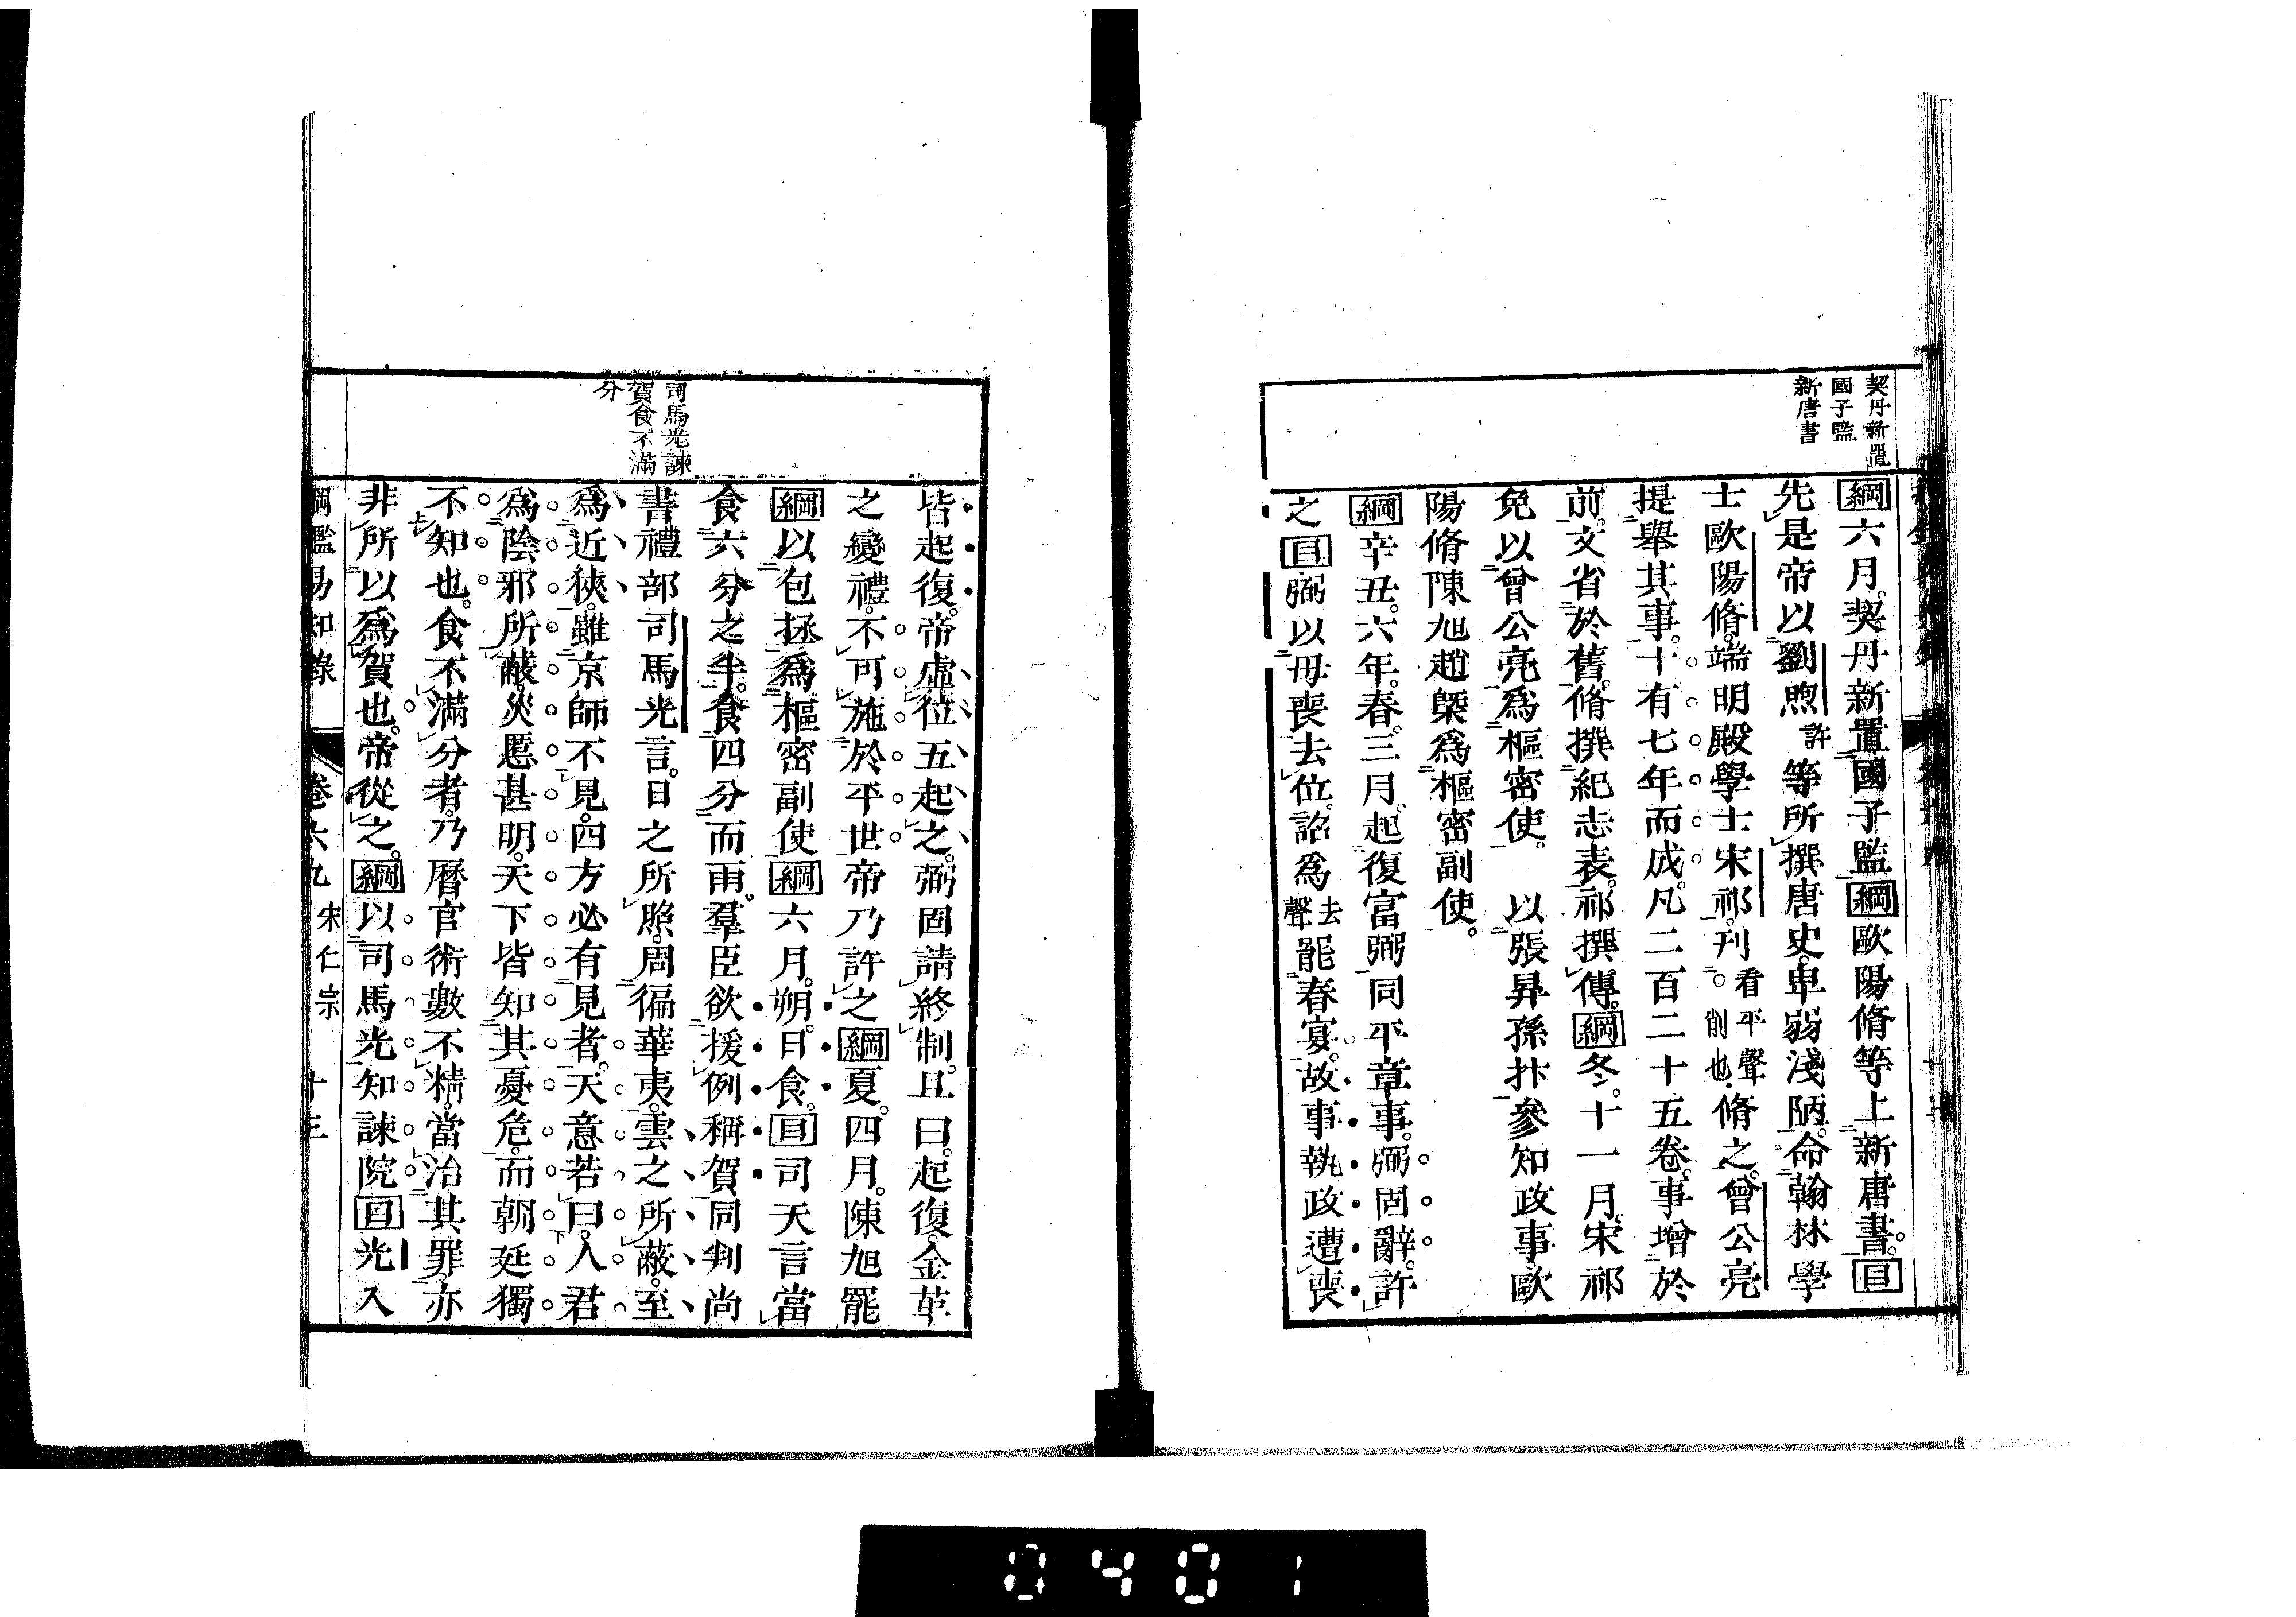 契丹新置
國子監
新唐書
綱六月。契丹新置國子監綱歐陽脩等上新唐書。目
先是帝以劉煦許等所撰唐史。卑弱淺陋。命翰林學
士歐陽脩。端明殿學士宋祁。刊看平聲削也。脩之。曾公亮
提舉其事。十有七年而成。凡二百二十五卷。事增於
前。文省於舊。脩撰紀志表。祁撰傳。綱冬。十一月。宋祁
免以曾公亮爲樞密使。以張昇孫抃參知政事。歐
陽脩陳旭趙槩爲樞密副使。
綱辛丑。六年。春。三月。起復富弼同平章事。弼固辭。許
之目弼以母喪去位。詔爲去聲罷春宴。故事執政遭喪
皆起復。帝虛位五起之。弼固請終制。且曰。起復。金革
之變禮。不可施於平世帝乃許之綱夏。四月。陳旭罷
綱以包拯爲樞密副使綱六月。朔。日食。目司天言當
食六分之半。食四分而雨。羣臣欲援例稱賀同判尚
書禮部司馬光言。日之所照。周徧華夷。雲之所蔽。至
爲近狹。雖京師不見。四方必有見者。天意若曰。人君
爲陰邪所蔽。災慝甚明。天下皆知其憂危。而朝廷獨
不知也。食不滿分者。乃曆官術數不精。當治其罪。亦
非所以爲賀也。帝從之。綱以司馬光知諫院目光入
司馬光諫
賀食不滿
分
綱鑑易知錄 卷六九 宋仁宗 十三
0401